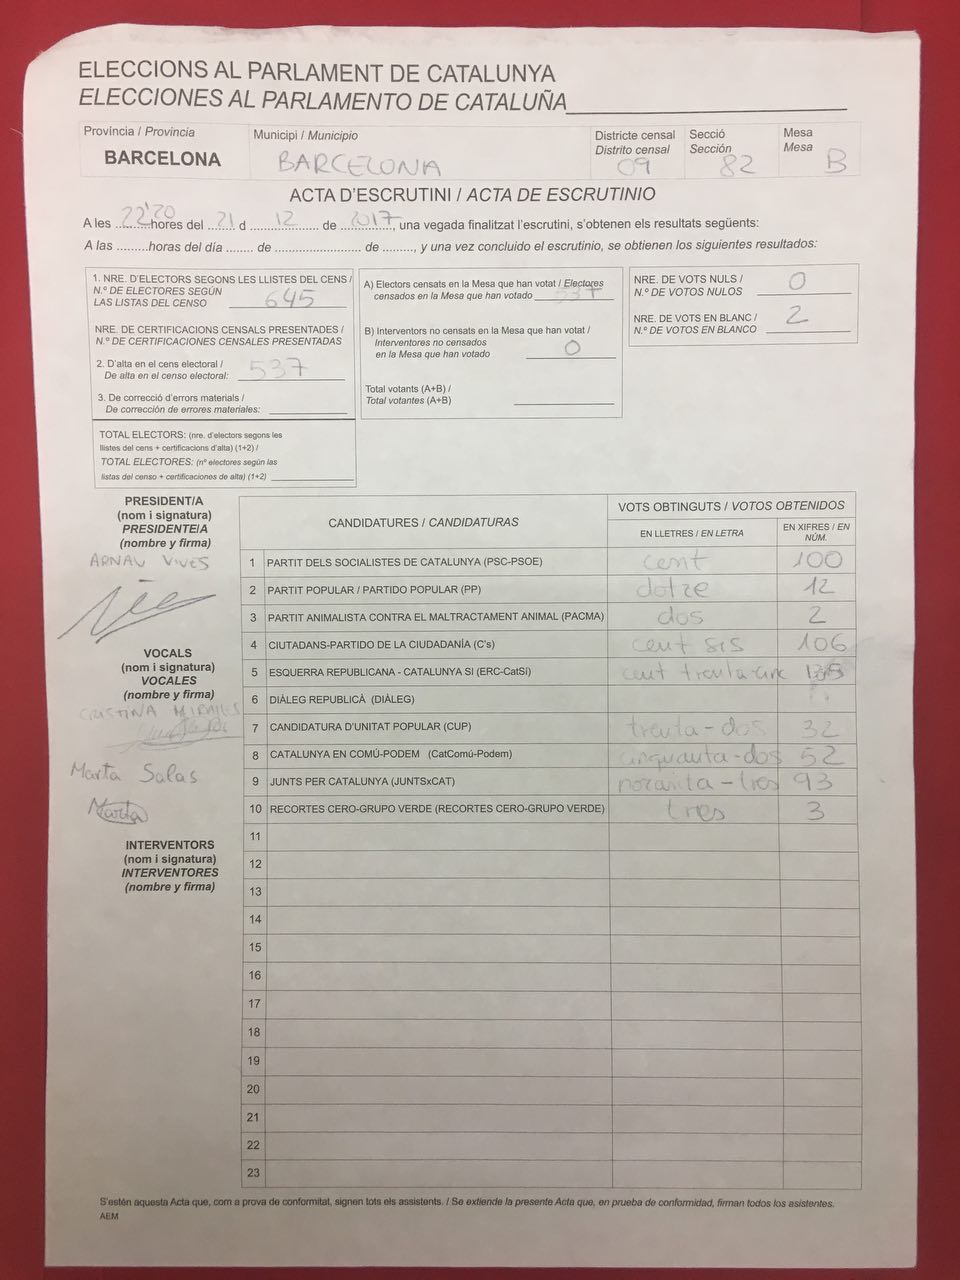 ELECCIONS AL PARLAMENT DE CATALUNYA
ELECCIONES AL PARLAMENTO DE CATALUÑA
Província / Provincia
BARCELONA
Municipi / Municipio
BARCELONA
Districte censal
Distrito censal
09
Secció
Sección
82
Mesa
Mesa
B
ACTA D'ESCRUTINI / ACTA DE ESCRUTINIO
A les 22'20 hores del 21 d 12 de 2017, una vegada finalitzat l'escrutini, s'obtenen els resultats següents:
A las .........horas del día ........ de ......................... de ........., y una vez concluido el escrutinio, se obtienen los siguientes resultados:
1. NRE. D'ELECTORS SEGONS LES LLISTES DEL CENS /
N.º DE ELECTORES SEGÚN
LAS LISTAS DEL CENSO 645
NRE. DE CERTIFICACIONS CENSALS PRESENTADES /
N.º DE CERTIFICACIONES CENSALES PRESENTADAS
2. D'alta en el cens electoral /
De alta en el censo electoral: 537
3. De correcció d'errors materials /
De corrección de errores materiales:
TOTAL ELECTORS: (nre. d'electors segons les
llistes del cens + certificacions d'alta) (1+2) /
TOTAL ELECTORES: (nº electores según las
listas del censo + certificaciones de alta) (1+2)
A) Electors censats en la Mesa que han votat / Electores
censados en la Mesa que han votado 537
B) Interventors no censats en la Mesa que han votat /
Interventores no censados
en la Mesa que han votado 0
Total votants (A+B) /
Total votantes (A+B)
NRE. DE VOTS NULS /
N.º DE VOTOS NULOS 0
NRE. DE VOTS EN BLANC /
N.º DE VOTOS EN BLANCO 2
PRESIDENT/A
(nom i signatura)
PRESIDENTE/A
(nombre y firma)
ARNAU VIVES
VOCALS
(nom i signatura)
VOCALES
(nombre y firma)
CRISTINA MIRALLES
Marta Salas
Marta
INTERVENTORS
(nom i signatura)
INTERVENTORES
(nombre y firma)
CANDIDATURES / CANDIDATURAS
VOTS OBTINGUTS / VOTOS OBTENIDOS
EN LLETRES / EN LETRA
EN XIFRES / EN NÚM.
1 PARTIT DELS SOCIALISTES DE CATALUNYA (PSC-PSOE) cent 100
2 PARTIT POPULAR / PARTIDO POPULAR (PP) dotze 12
3 PARTIT ANIMALISTA CONTRA EL MALTRACTAMENT ANIMAL (PACMA) dos 2
4 CIUTADANS-PARTIDO DE LA CIUDADANÍA (C's) cent sis 106
5 ESQUERRA REPUBLICANA - CATALUNYA SI (ERC-CatSí) cent trenta-cinc 135
6 DIÀLEG REPUBLICÀ (DIÀLEG)
7 CANDIDATURA D'UNITAT POPULAR (CUP) trenta-dos 32
8 CATALUNYA EN COMÚ-PODEM (CatComú-Podem) cinquanta-dos 52
9 JUNTS PER CATALUNYA (JUNTSxCAT) noranta-tres 93
10 RECORTES CERO-GRUPO VERDE (RECORTES CERO-GRUPO VERDE) tres 3
11
12
13
14
15
16
17
18
19
20
21
22
23
S'estén aquesta Acta que, com a prova de conformitat, signen tots els assistents. / Se extiende la presente Acta que, en prueba de conformidad, firman todos los asistentes.
AEM